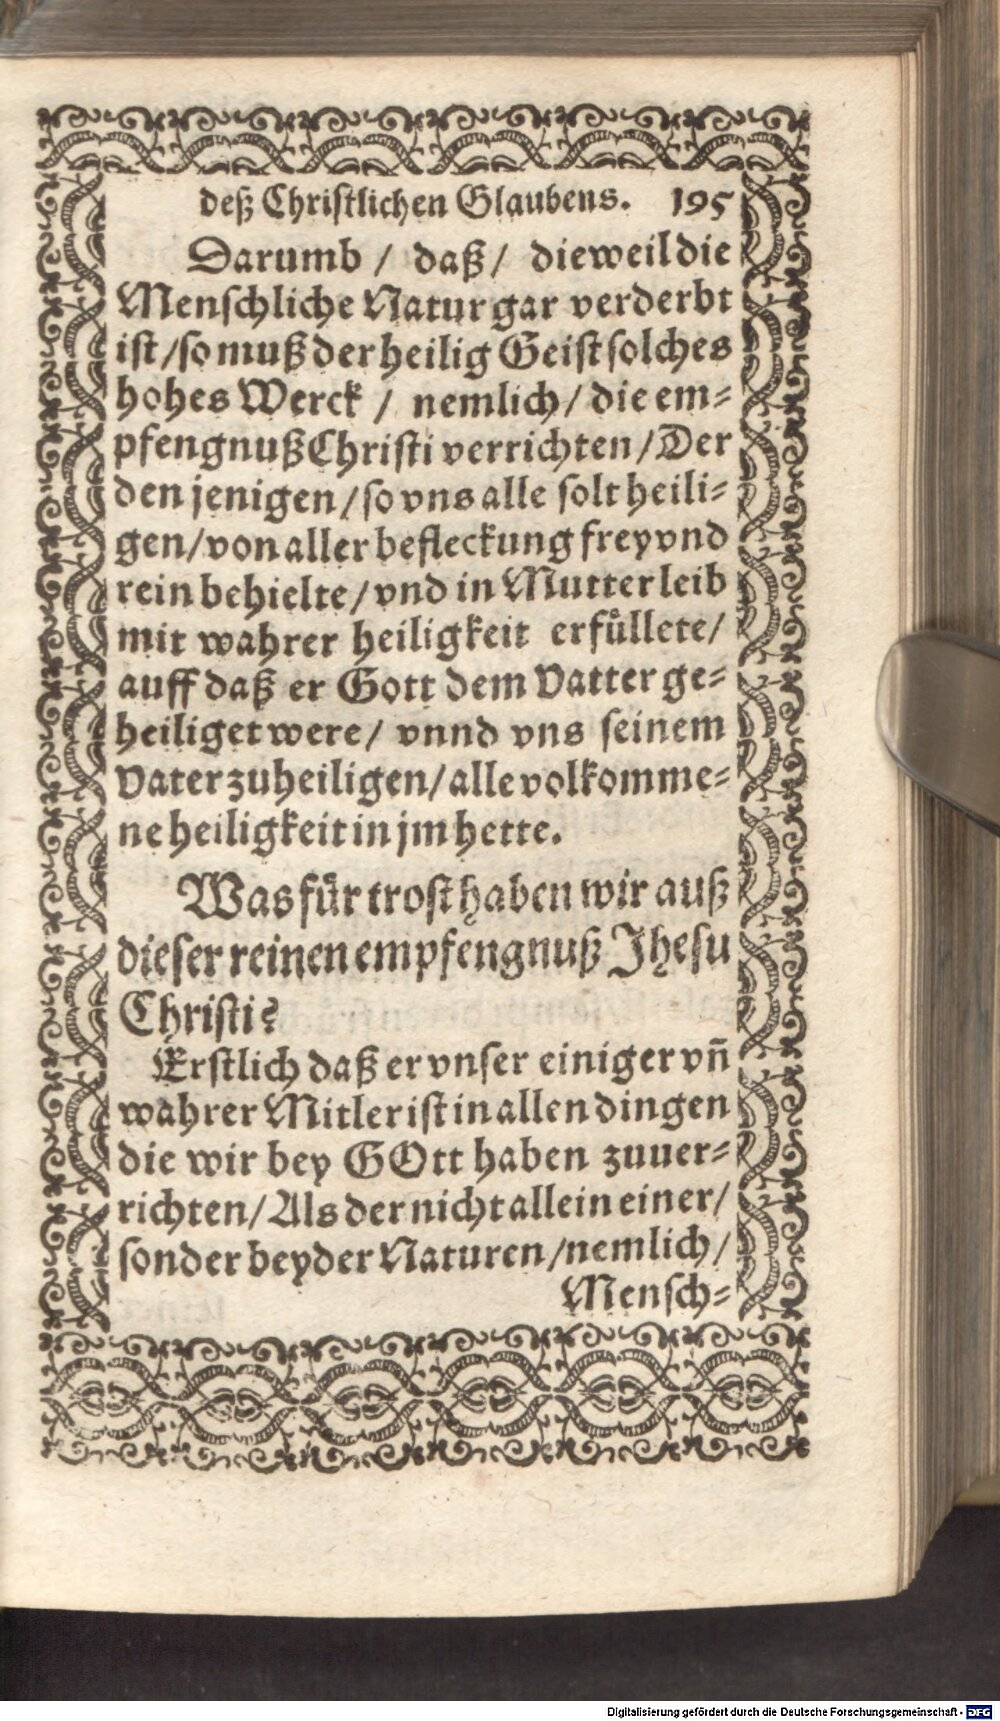 deß Christlichen Glaubens. 195
Darumb / daß / dieweil die
Menschliche Natur gar verderbt
ist / so muß der heilig Geist solches
hohes Werck / nemlich / die em-
pfengnuß Christi verrichten / Der
den jenigen / so vns alle solt heili-
gen / von aller befleckung frey vnd
rein behielte / vnd in Mutter leib
mit wahrer heiligkeit erfůllete /
auff daß er Gott dem Vatter ge-
heiliget were / vnnd vns seinem
Vater zu heiligen / alle volkomme-
ne heiligkeit in jm hette.
Was für trost haben wir auß
dieser reinen empfengnuß Jhesu
Christi?
Erstlich daß er vnser einiger vñ
wahrer Mitler ist in allen dingen
die wir bey GOtt haben zuuer-
richten / Als der nicht allein einer /
sonder beyder Naturen / nemlich /
Mensch-
Digitalisierung gefördert durch die Deutsche Forschungsgemeinschaft - DFG